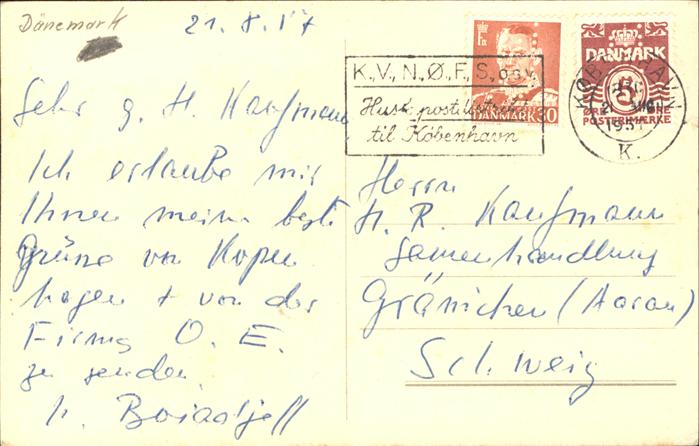 Dänemark
21. 8. 57
Sehr g. H. Kaufmann,
Ich erlaube mir
Ihnen meine best.
Grüsse von Kopen
hagen + von der
Firma O. E.
zu senden.
K., V., N., Ø., F., S., o.s.v.
Husk: postdistrikt
til København
DANMARK 30
DANMARK
5
ØRE
POSTFÆRGE
KØBENHAVN
1957
K.
Herrn
H. R. Kaufmann
Samenhandlung
Gränichen (Aarau)
Schweiz